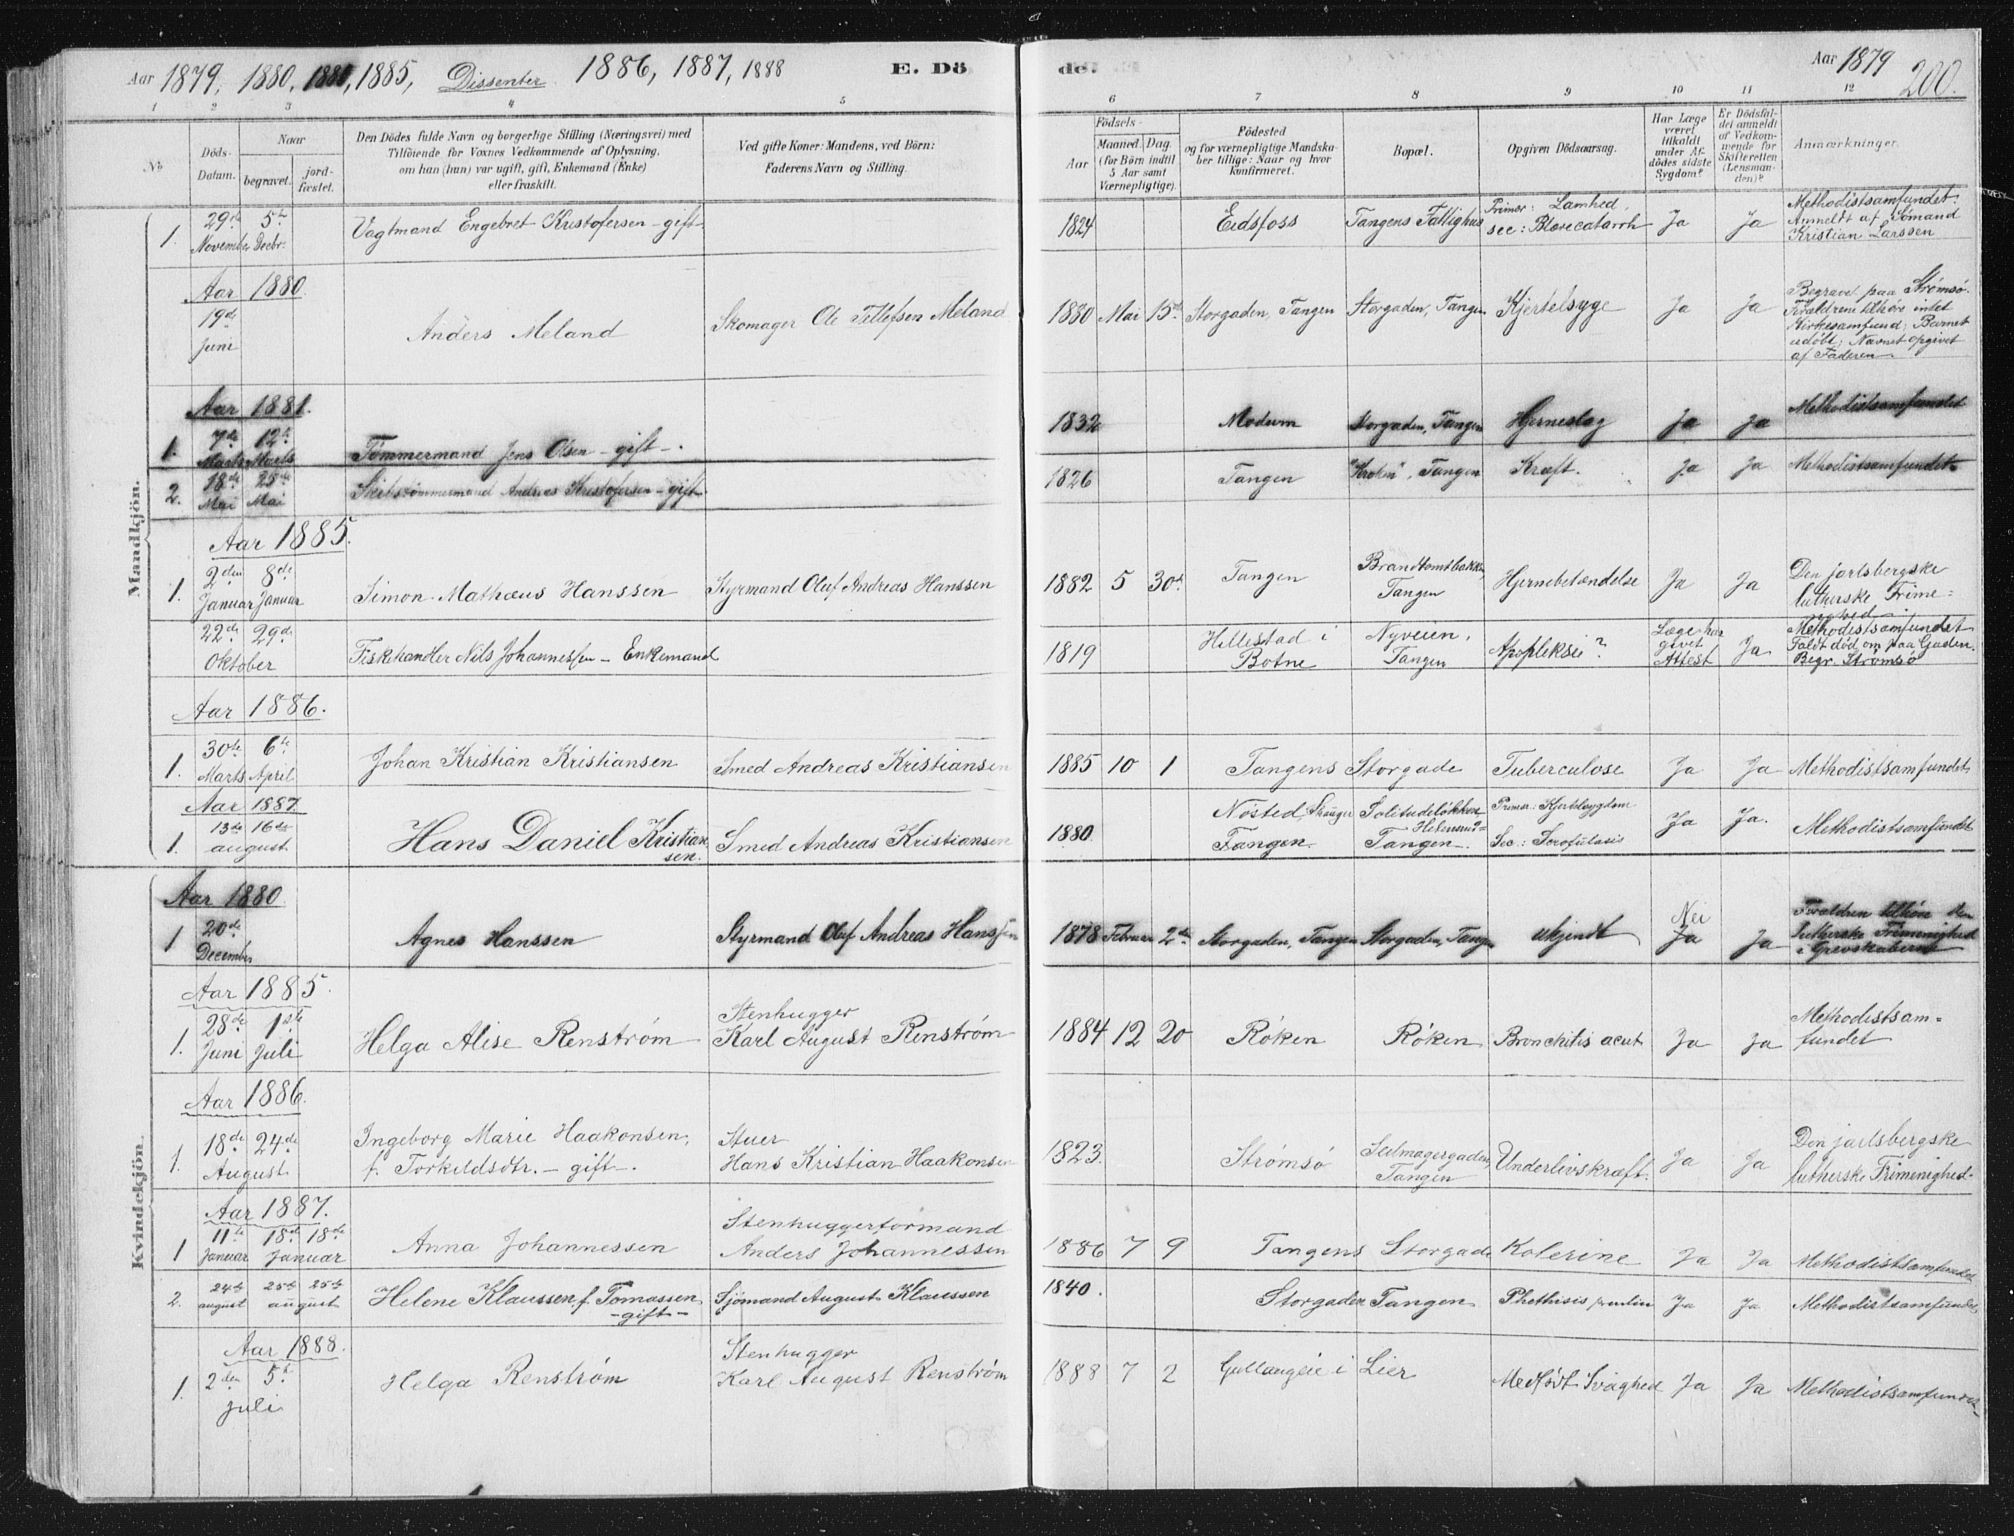 Aar 1879, 1880, 1881, 1885, Dissenter 1886, 1887, 1888 E. Dö
de. Aar 1879
200.
1 2 3 4 5 6 7 8 9 10 11 12
No
Döds-
Datum.
Naar
begravet.
jord-
fæstet.
Den Dödes fulde Navn og borgerlige Stilling (Næringsvei) med
Tilföiende for Voxnes Vedkommende af Oplysning,
om han (hun) var ugift, gift, Enkemand (Enke)
eller fraskilt.
Ved gifte Koner: Mandens, ved Börn:
Faderens Navn og Stilling.
Födsels-
Aar
Maaned. Dag.
(for Börn indtil
5 Aar samt
Værnepligtige).
Födested
og for værnepligtige Mandska-
ber tillige: Naar og hvor
konfirmeret.
Bopæl.
Opgiven Dödsaarsag.
Har Læge
været
tilkaldt
under Af-
dödes sidste
Sygdom?
Er Dödsfal-
det anmeldt
af Vedkom-
mende for
Skifteretten
(Lensman-
den)?
Anmærkninger.
Mandkjön.
1. 29de November 5te Decbr. Vagtmand Engebret Kristofersen - gift 1824 Eidsfoss Tangens Fattighus Primær: Lamhed, sec: Blærecatarrh Ja Ja Methodistsamfundet. Anmeldt af Sømand Kristian Larssen
Aar 1880.
19de Juni Anders Meland Skomager Ole Tellefsen Meland 1880 Mai 15de Storgaden, Tangen Storgaden, Tangen Kjertelsyge Ja Ja Begravet paa Strømsö. Forældrene tilhøre intet Kirkesamfund; Barnet udøbt; Navnet opgivet af Faderen.
Aar 1881.
1. 7de Marts 12te Marts Tømmermand Jens Olsen - gift -. 1832 Modum Storgaden, Tangen Hjerneslag Ja Ja Methodistsamfundet
2. 18de Mai 25de Mai Skibstømmermand Andreas Kristofersen - gift 1826 Tangen "Kroken", Tangen Kræft. Ja Ja Methodistsamfundet
Aar 1885.
1. 2den Januar 8de Januar Simon Mathæus Hanssen Styrmand Oluf Andreas Hanssen 1882 5 30te Tangen Brandtomtbakken, Tangen Hjernebetændelse Ja Ja Den jarlsbergske lutherske Frime=nighed
22de 29de Oktober Fiskehandler Nils Johannessen - Enkemand 1819 Hillestad i Botne Nyveien, Tangen Apopleksie? Læge har givet Attest Ja Methodistsamfundet Faldt död om paa Gaden. Begr. Strömsö
Aar 1886.
1. 30te Marts 6te April Johan Kristian Kristiansen Smed Andreas Kristiansen 1885 10 1 Tangens Storgade Tuberculose Ja Ja Methodistsamfundet
Aar 1887.
1. 13de 16de august Hans Daniel Kristiansen. Smed Andreas Kristiansen 1880. Nösted, Skauger Tangen. Solitudeløkken Tangen. Primær: Kjertelsygdom Sec: Scrofulosis Ja Ja. Methodistsamfundet
Kvindekjön.
Aar 1880
1 20de December Agnes Hanssen Styrmand Oluf Andreas Hanssen 1878 Februar 2den Storgaden, Tangen Storgaden, Tangen ukjendt Nei Ja Ja Forældren tilhøre den lutherske Frimenighed i Grevskaberne
Aar 1885.
1. 28de Juni 1ste Juli Helga Alise Renström Stenhugger Karl August Renström 1884 12 20 Röken Röken Bronchitis acut Ja Ja Methodistsam=fundet
Aar 1886.
1. 18de 24de August Ingeborg Marie Haakonsen, f. Torkildsdtr. - gift -. Stuer Hans Kristian Haakonsen 1823. Strömsö Seilmagergaden, Tangen Underlivskræft. Ja Ja Den jarlsbergske lutherske Frimenighed.
Aar 1887.
1 11te Januar 18de 18de Januar Anna Johannessen Stenhuggerformand Anders Johannessen 1886 7 9 Tangens Storgade Kolerine Ja Ja Methodistsamfundet
2. 24de august 25de 25de august Helene Klaussen f. Tomassen - gift - Sjömand August Klaussen 1840. Storgaden Tangen Phthisis Ja Ja Methodistsamfundet
Aar 1888.
1. 2den 5te Juli Helga Renström Stenhugger Karl August Renström 1888 7 2 Gullaugeie i Lier Medfödt Svaghed Ja Ja Methodistsamfundet